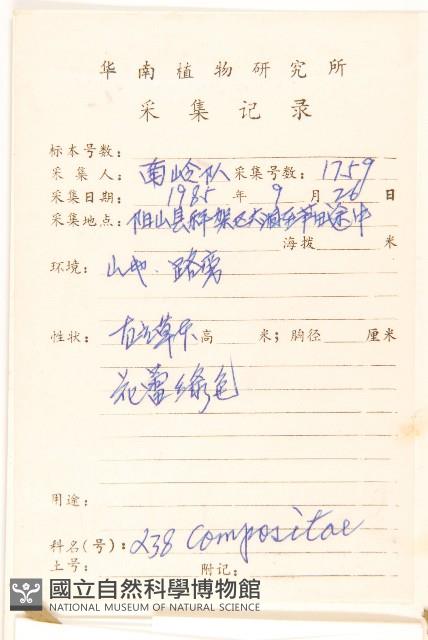 华南植物研究所
采集记录
标本号数：
采集人：南岭队 采集号数：1759
采集日期：1985年9月26日
采集地点：阳山县秤架区大洞至茅田途中
海拔 米
环境：山地．路旁
性状：直立草本高 米；胸径 厘米
花蕾绿色
用途：
科名(号)：238 Compositae
土号： 附记：
國立自然科學博物館
NATIONAL MUSEUM OF NATURAL SCIENCE